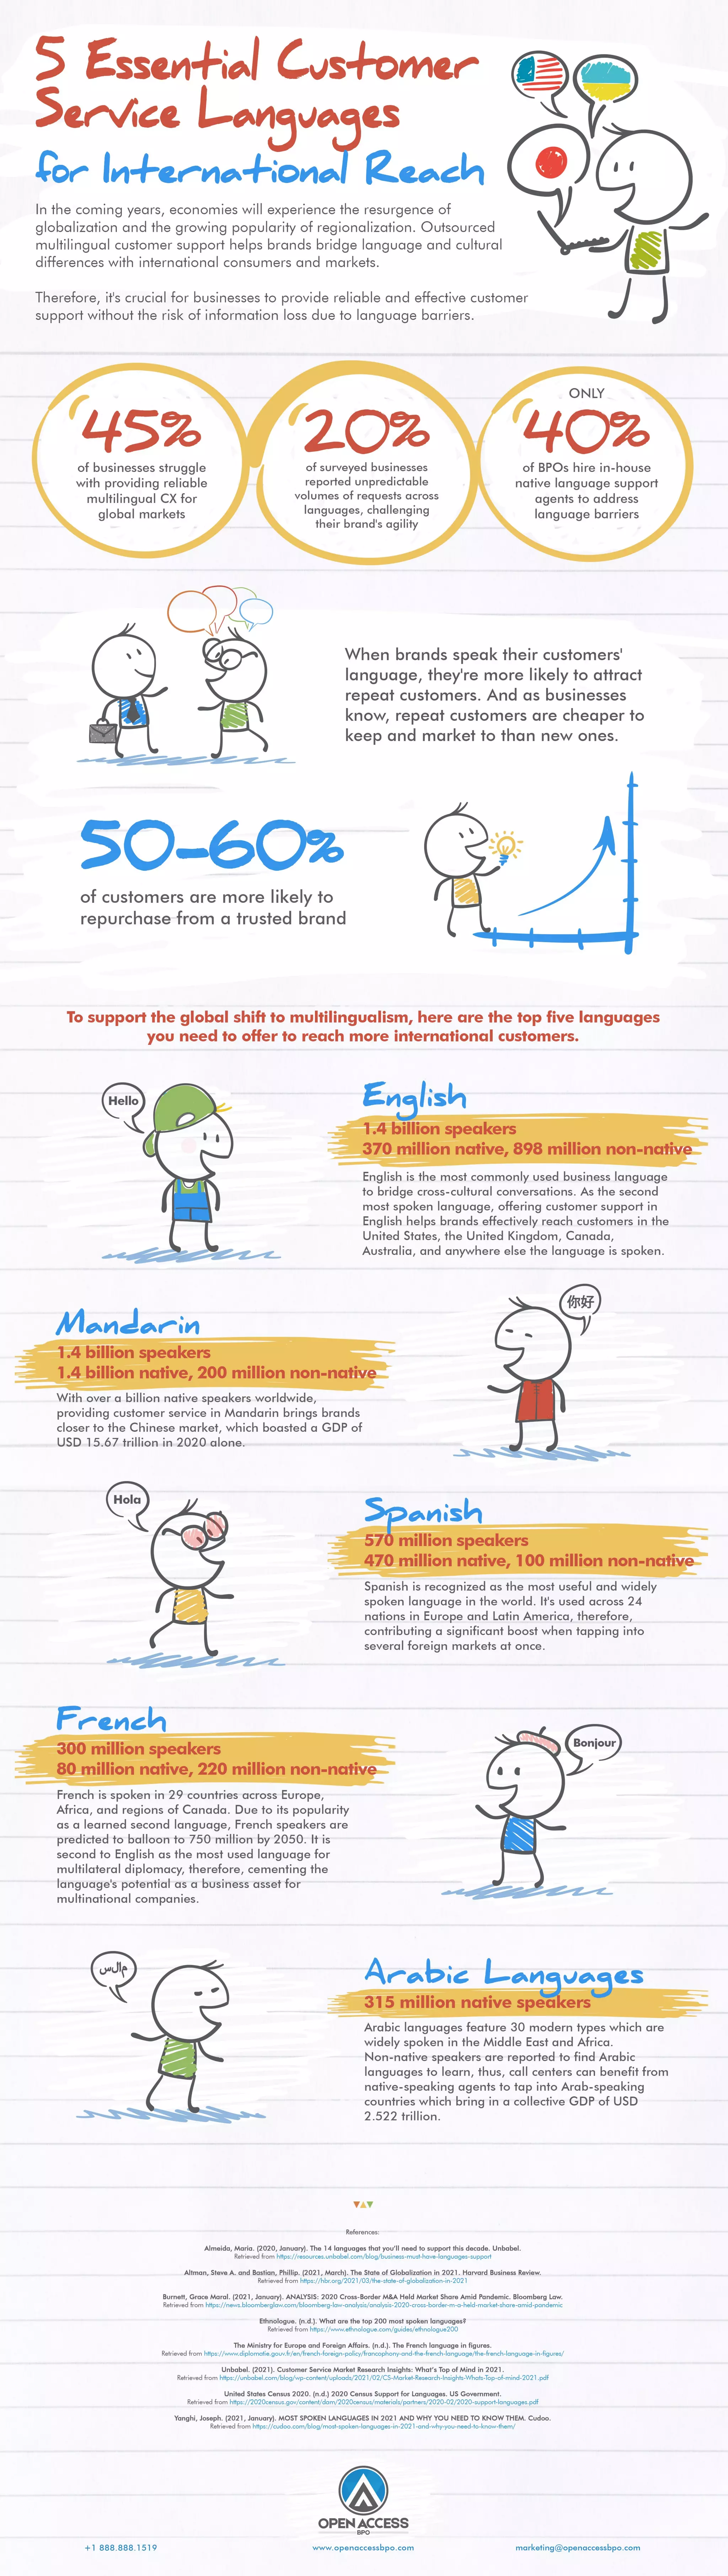 5 Essential Customer
Service Languages
for International Reach
In the coming years, economies will experience the resurgence of
globalization and the growing popularity of regionalization. Outsourced
multilingual customer support helps brands bridge language and cultural
differences with international consumers and markets.
Therefore, it's crucial for businesses to provide reliable and effective customer
support without the risk of information loss due to language barriers.
45%
of businesses struggle
with providing reliable
multilingual CX for
global markets
20%
of surveyed businesses
reported unpredictable
volumes of requests across
languages, challenging
their brand's agility
ONLY
40%
of BPOs hire in-house
native language support
agents to address
language barriers
When brands speak their customers'
language, they're more likely to attract
repeat customers. And as businesses
know, repeat customers are cheaper to
keep and market to than new ones.
50-60%
of customers are more likely to
repurchase from a trusted brand
To support the global shift to multilingualism, here are the top five languages
you need to offer to reach more international customers.
Hello
English
1.4 billion speakers
370 million native, 898 million non-native
English is the most commonly used business language
to bridge cross-cultural conversations. As the second
most spoken language, offering customer support in
English helps brands effectively reach customers in the
United States, the United Kingdom, Canada,
Australia, and anywhere else the language is spoken.
你好
Mandarin
1.4 billion speakers
1.4 billion native, 200 million non-native
With over a billion native speakers worldwide,
providing customer service in Mandarin brings brands
closer to the Chinese market, which boasted a GDP of
USD 15.67 trillion in 2020 alone.
Hola
Spanish
570 million speakers
470 million native, 100 million non-native
Spanish is recognized as the most useful and widely
spoken language in the world. It's used across 24
nations in Europe and Latin America, therefore,
contributing a significant boost when tapping into
several foreign markets at once.
French
300 million speakers
80 million native, 220 million non-native
Bonjour
French is spoken in 29 countries across Europe,
Africa, and regions of Canada. Due to its popularity
as a learned second language, French speakers are
predicted to balloon to 750 million by 2050. It is
second to English as the most used language for
multilateral diplomacy, therefore, cementing the
language's potential as a business asset for
multinational companies.
Arabic Languages
315 million native speakers
Arabic languages feature 30 modern types which are
widely spoken in the Middle East and Africa.
Non-native speakers are reported to find Arabic
languages to learn, thus, call centers can benefit from
native-speaking agents to tap into Arab-speaking
countries which bring in a collective GDP of USD
2.522 trillion.
References:
Almeida, Maria. (2020, January). The 14 languages that you'll need to support this decade. Unbabel.
Retrieved from https://resources.unbabel.com/blog/business-must-have-languages-support
Altman, Steve A. and Bastian, Phillip. (2021, March). The State of Globalization in 2021. Harvard Business Review.
Retrieved from https://hbr.org/2021/03/the-state-of-globalization-in-2021
Burnett, Grace Maral. (2021, January). ANALYSIS: 2020 Cross-Border M&A Held Market Share Amid Pandemic. Bloomberg Law.
Retrieved from https://news.bloomberglaw.com/bloomberg-law-analysis/analysis-2020-cross-border-m-a-held-market-share-amid-pandemic
Ethnologue. (n.d.). What are the top 200 most spoken languages?
Retrieved from https://www.ethnologue.com/guides/ethnologue200
The Ministry for Europe and Foreign Affairs. (n.d.). The French language in figures.
Retrieved from https://www.diplomatie.gouv.fr/en/french-foreign-policy/francophony-and-the-french-language/the-french-language-in-figures/
Unbabel. (2021). Customer Service Market Research Insights: What's Top of Mind in 2021.
Retrieved from https://unbabel.com/blog/wp-content/uploads/2021/02/CS-Market-Research-Insights-Whats-Top-of-mind-2021.pdf
United States Census 2020. (n.d.) 2020 Census Support for Languages. US Government.
Retrieved from https://2020census.gov/content/dam/2020census/materials/partners/2020-02/2020-support-languages.pdf
Yanghi, Joseph. (2021, January). MOST SPOKEN LANGUAGES IN 2021 AND WHY YOU NEED TO KNOW THEM. Cudoo.
Retrieved from https://cudoo.com/blog/most-spoken-languages-in-2021-and-why-you-need-to-know-them/
OPEN ACCESS
BPO
+1 888.888.1519
www.openaccessbpo.com
marketing@openaccessbpo.com